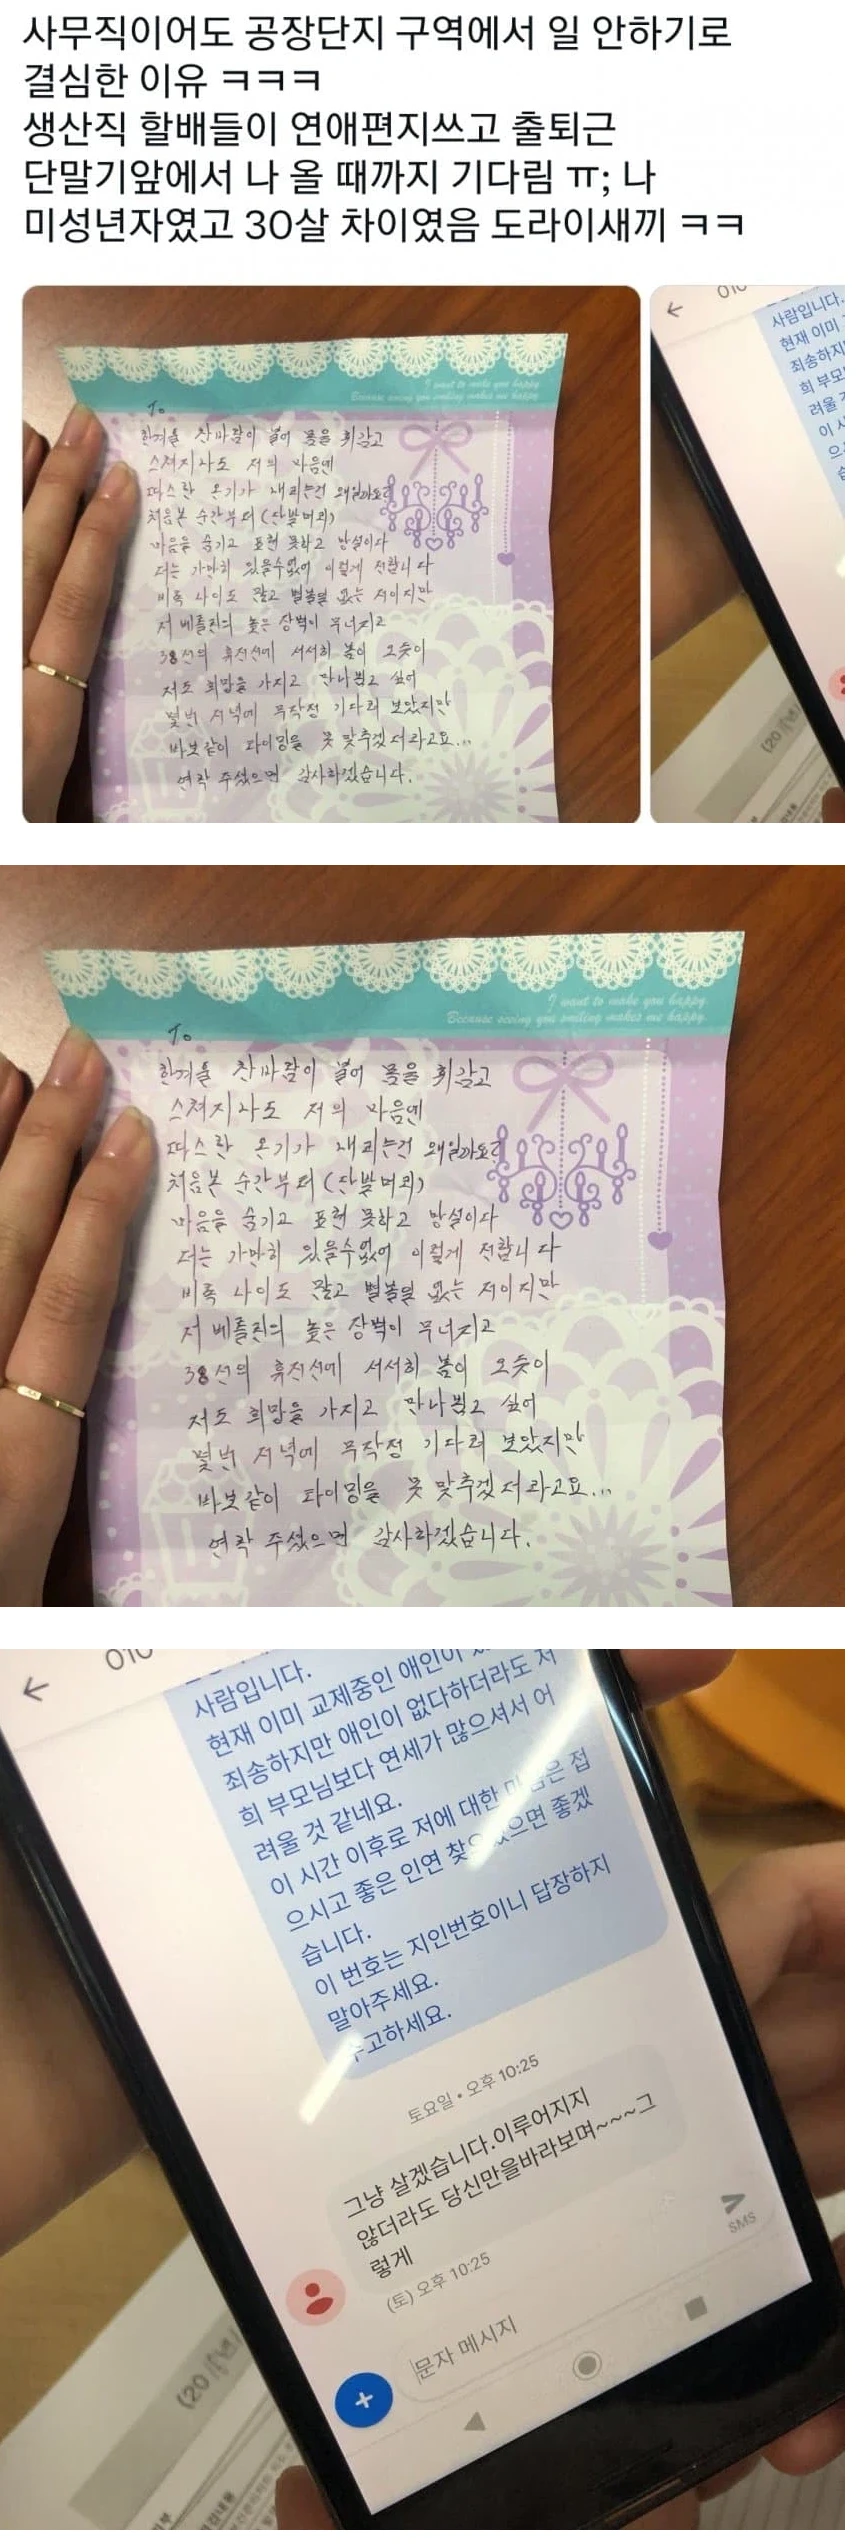 사무직이어도 공장단지 구역에서 일 안하기로
결심한 이유 ㅋㅋㅋ
생산직 할배들이 연애편지쓰고 출퇴근
단말기앞에서 나 올 때까지 기다림 ㅠ; 나
미성년자였고 30살 차이였음 도라이새끼 ㅋㅋ
I want to make you happy.
Because seeing you smiling makes me happy.
To
한겨울 찬바람이 불어 몸을 휘감고
스쳐지나도 저의 마음엔
따스한 온기가 내리는건 왜일까요?
처음본 순간부터 (단발머리)
마음을 숨기고 표현 못하고 망설이다
더는 가만히 있을수없어 이렇게 전합니다
비록 나이도 많고 별볼일 없는 저이지만
저 베를린의 높은 장벽이 무너지고
38선의 휴전선에 서서히 봄이 오듯이
저도 희망을 가지고 만나뵙고 싶어
몇번 저녁에 무작정 기다려 보았지만
바보같이 타이밍을 못 맞추겠더라고요...
연락 주셨으면 감사하겠습니다.
010
사람입니다.
현재 이미
죄송하지
희 부모
려울
이 시
으
습
(20
I want to make you happy.
Because seeing you smiling makes me happy.
To
한겨울 찬바람이 불어 몸을 휘감고
스쳐지나도 저의 마음엔
따스한 온기가 내리는건 왜일까요?
처음본 순간부터 (단발머리)
마음을 숨기고 표현 못하고 망설이다
더는 가만히 있을수없어 이렇게 전합니다
비록 나이도 많고 별볼일 없는 저이지만
저 베를린의 높은 장벽이 무너지고
38선의 휴전선에 서서히 봄이 오듯이
저도 희망을 가지고 만나뵙고 싶어
몇번 저녁에 무작정 기다려 보았지만
바보같이 타이밍을 못 맞추겠더라고요...
연락 주셨으면 감사하겠습니다.
010
사람입니다.
현재 이미 교제중인 애인이
죄송하지만 애인이 없다하더라도 저
희 부모님보다 연세가 많으셔서 어
려울 것 같네요.
이 시간 이후로 저에 대한 마음은 접
으시고 좋은 인연 찾으셨으면 좋겠
습니다.
이 번호는 지인번호이니 답장하지
말아주세요.
수고하세요.
토요일 • 오후 10:25
그냥 살겠습니다.이루어지지
않더라도 당신만을바라보며~~~그
렇게
(토) 오후 10:25
문자 메시지
SMS
(20